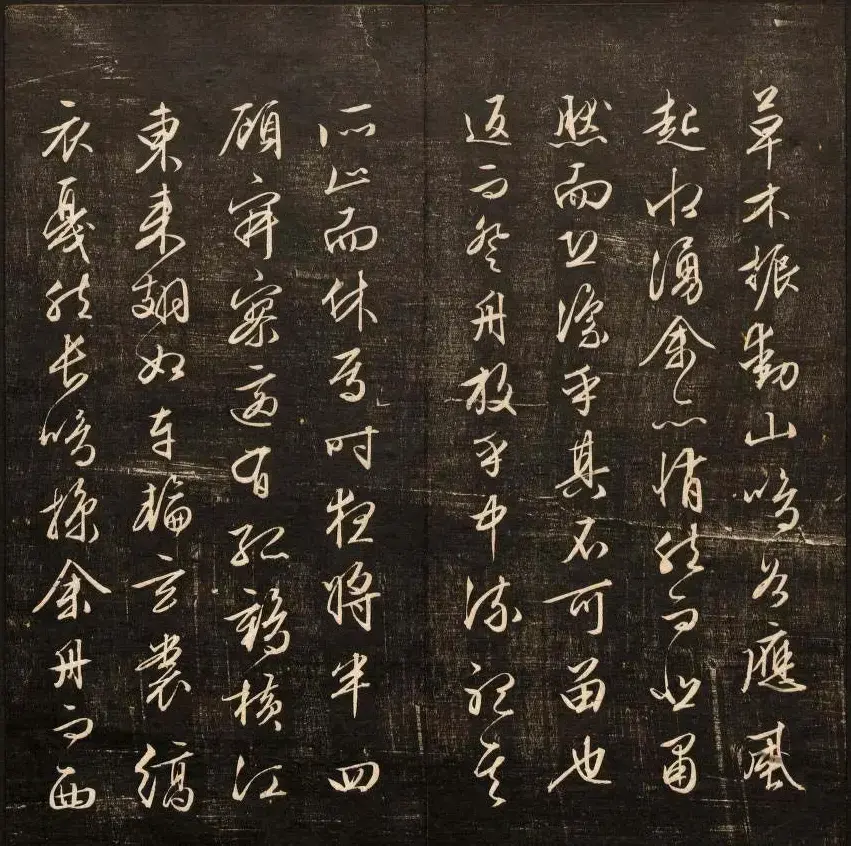 草木振動山鳴谷應風
起水湧余亦悄然而悲肅
然而恐凜乎其不可留也
返而登舟放乎中流聽其
所止而休焉時夜將半四
顧寂寥適有孤鶴橫江
東來翅如車輪玄裳縞
衣戛然長鳴掠余舟而西